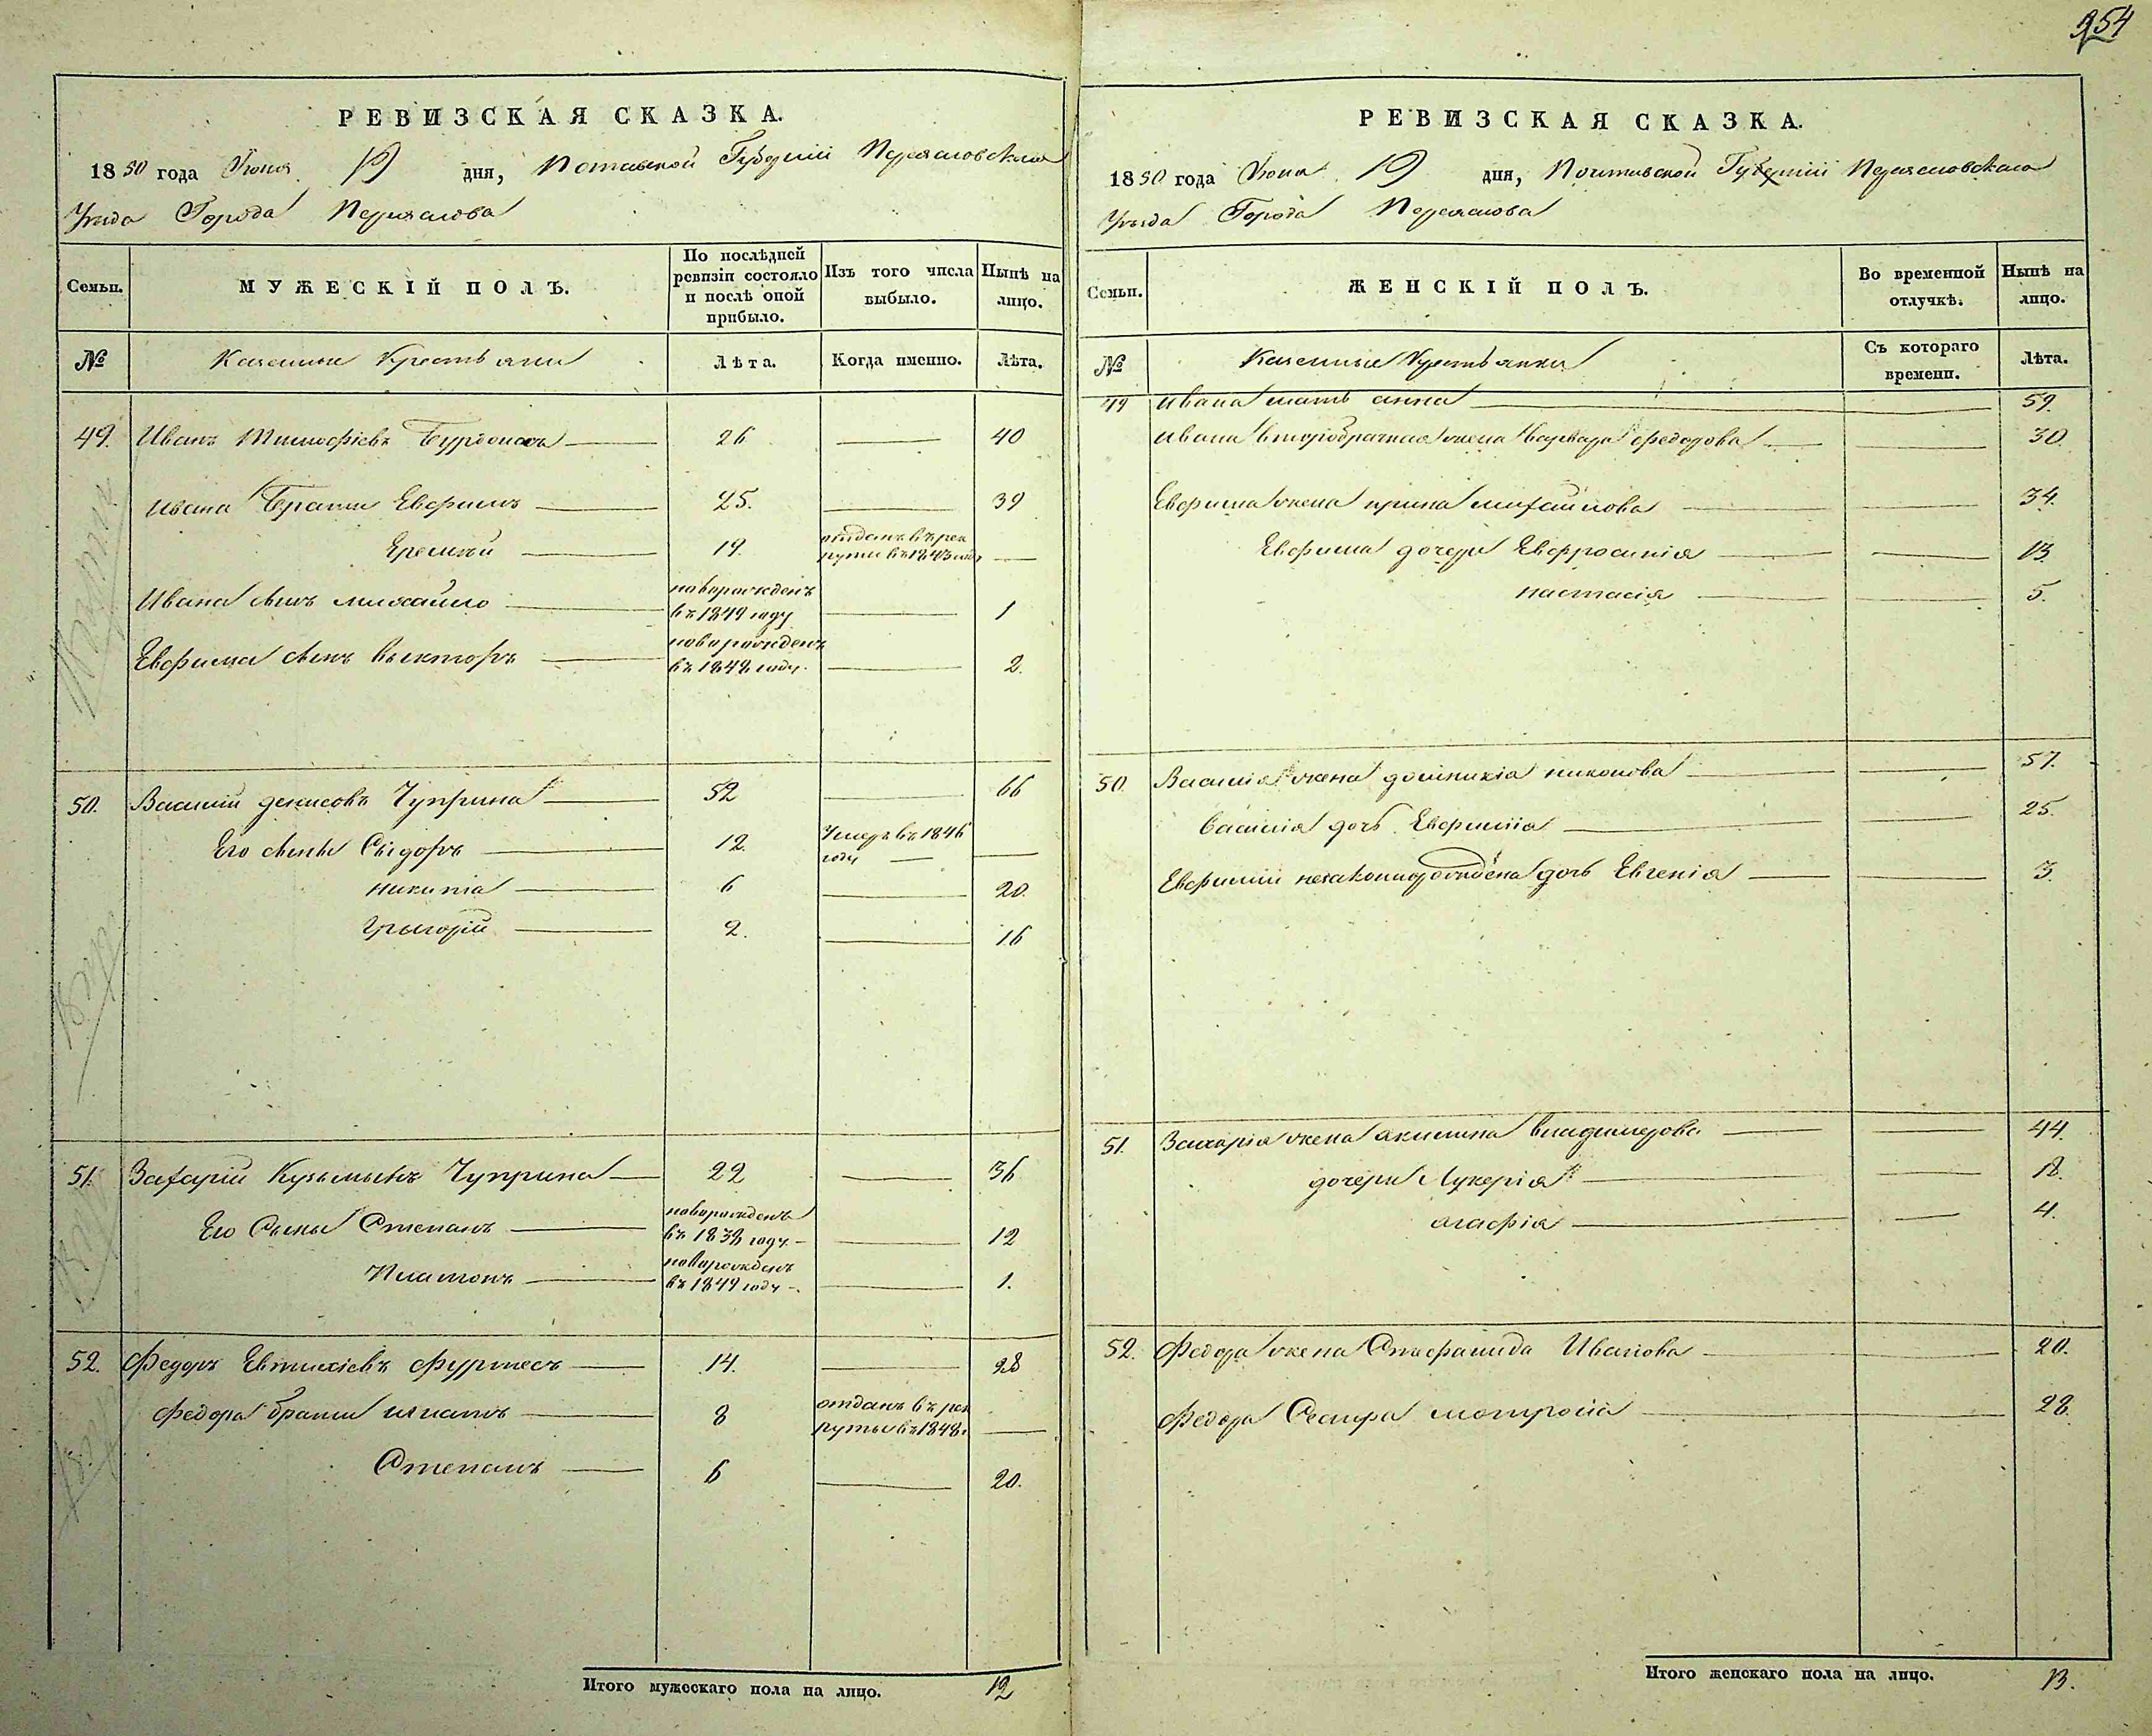 354
РЕВИЗСКАЯ СКАЗКА.
1850 года Июня 19 дня, Полтавской Губерніи Переясловскаго
Уѣзда Города Переяслова
Семьи.
МУЖЕСКІЙ ПОЛЪ.
По послѣдней
ревизіи состояло
и послѣ оной
прибыло.
Изъ того числа
выбыло.
Нынѣ на
лицо.
№
Казенные Крестьяни
Лѣта.
Когда именно.
Лѣта.
49. Иванъ Тимофіевъ 26 40
Ивана Брати Евфимъ 25. 39
Еремѣй 19. отданъ въ рек
руты въ 1843 году
Ивана сынъ михайло новорожденъ
въ 1849 году 1
Евфима сынъ выкторъ новорожденъ
въ 1848 году. 2.
50. Василій денисовъ Чуприна 52 66
Его сыны Сидоръ 12. Умеръ въ 1846
году
никита 6 20.
Григорій 2. 16
51. Захарій Кузьминъ Чуприна 22 36
Его Сыны Степанъ новорожденъ
въ 1838 году 12
Платонъ новорожденъ
въ 1849 году 1.
52. Федоръ Евтихіевъ Фуртесъ 14. 28
Федора брати игнатъ 8 отданъ въ рек
руты въ 1848 г
Степанъ 6 20.
Итого мужескаго пола на лицо. 12
РЕВИЗСКАЯ СКАЗКА.
1850 года Июня 19 дня, Полтавской Губерніи Переясловскаго
Уѣзда Города Переяслова
Семьи.
ЖЕНСКІЙ ПОЛЪ.
Во временной
отлучкѣ.
Нынѣ на
лицо.
№
Казенные Крестьянки
Съ котораго
времени.
Лѣта.
49 Ивана мать анна 59.
Ивана второбрачная жена варвара федорова 30
Евфима жена ирина михайлова 34.
Евфима дочери Евфросинія 13.
настасія 5.
50. Василія жена домникіа никонова 57.
Василія дочь Евфимія 25.
Евфиміи незаконнорождена дочь Евгенія 3.
51. Захарія жена акилина владимерова 44.
дочери Лукерія 18.
агафія 4.
52. Федора жена Стефанида Иванова 20.
Федора Сестра мотрона 28.
Итого женскаго пола на лицо. 13.